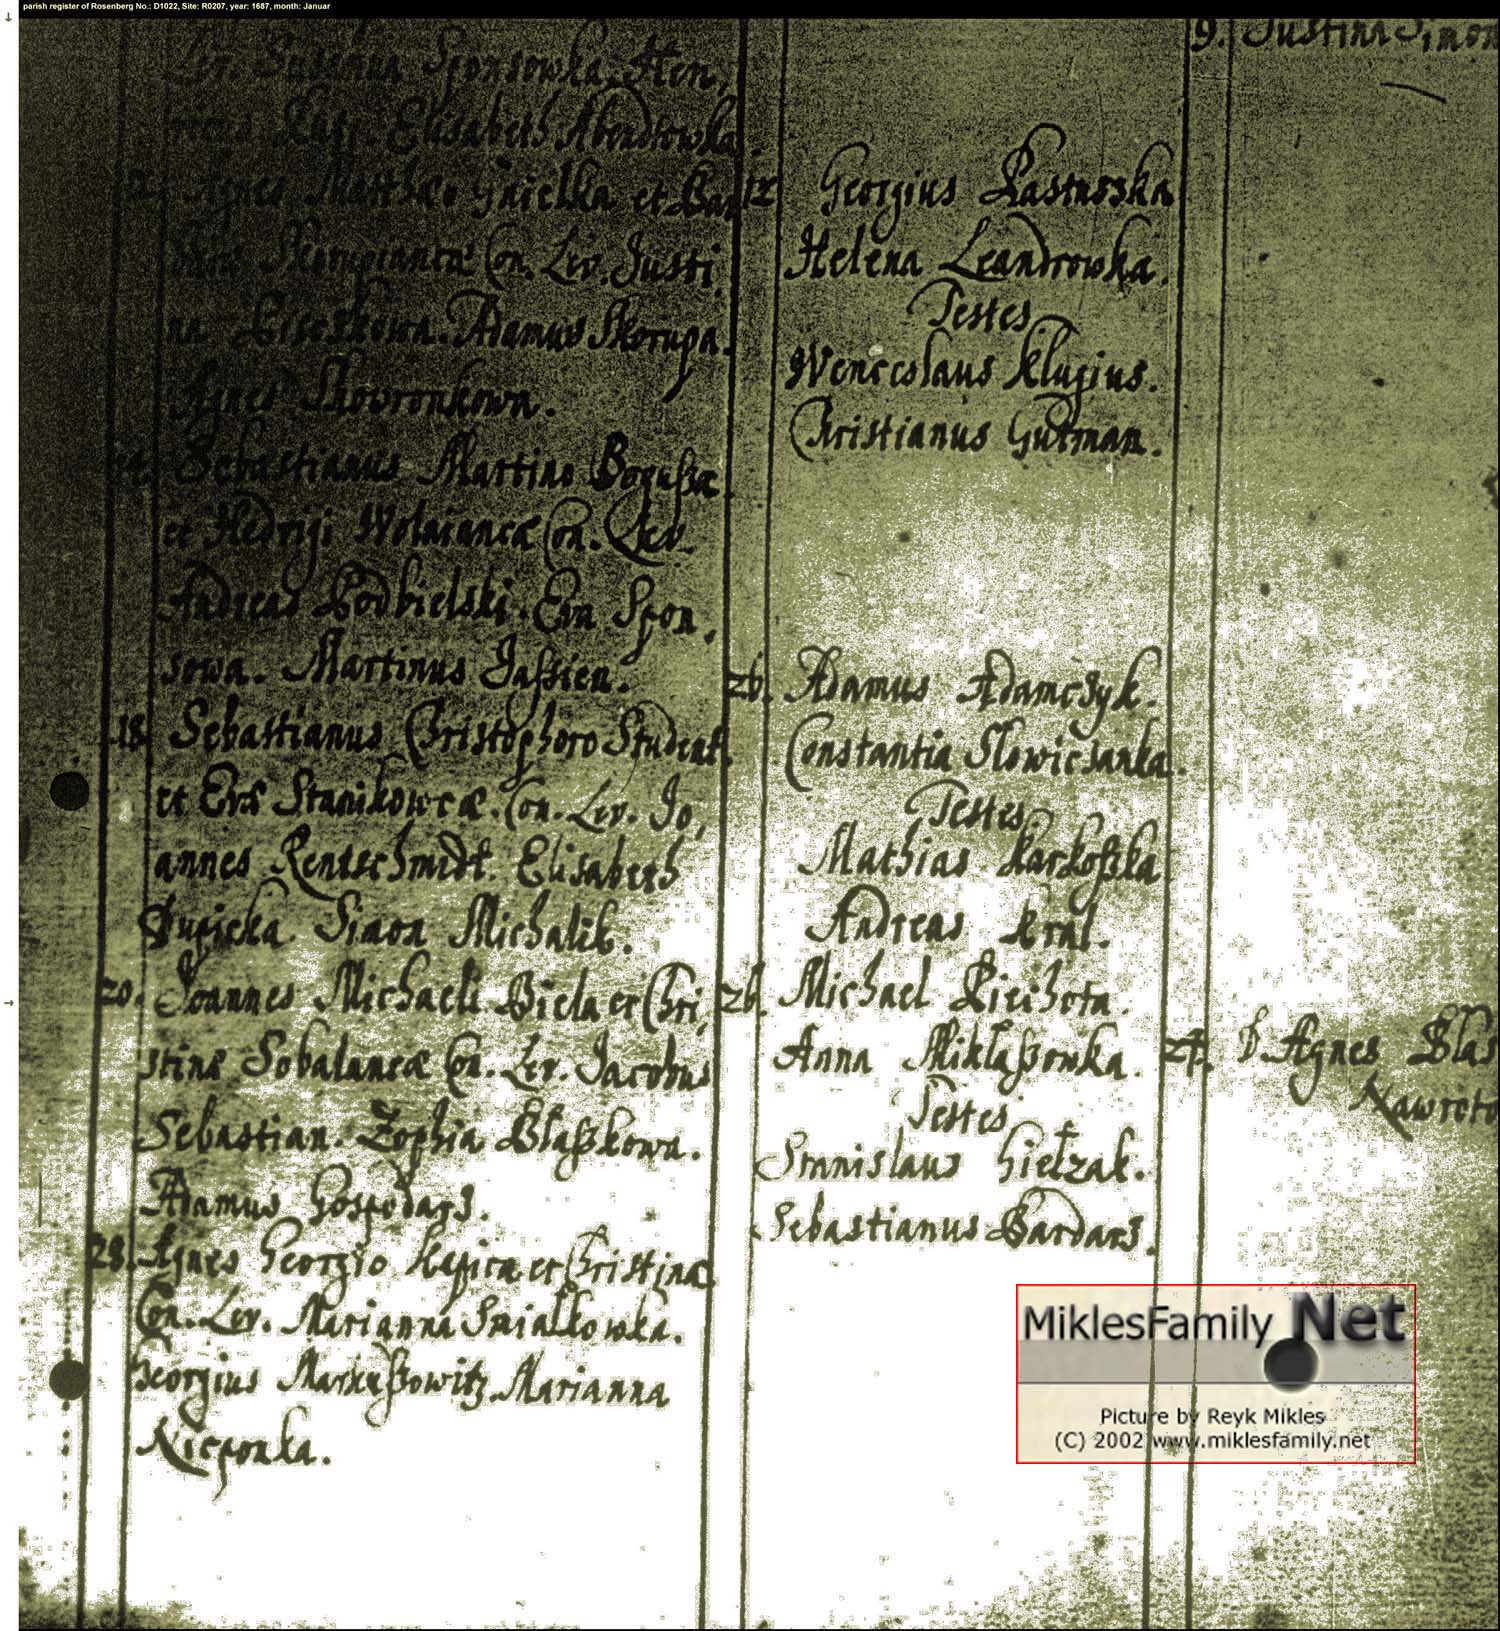 parish register of Rosenberg No.: D1022, Site: R0207, year: 1687, month: Januar
Lev. Susanna Sponsowka. Hen,
Elisabeth
Agnes Matthæo Gnielka et Bar
Con. Lev. Justi,
na Adamus Skorupa.
Agnes Skowronkowa.
Sebastianus Martino Bogussæ
et Hedvigi Con. Lev.
Andreas Podbielski. Eva Spon,
sowa. Martinus Jassien.
18. Sebastianus Christophoro Student
et Evæ Stanikowcæ. Con. Lev. Jo,
annes Rentschmidt. Elisabeth
Simon Michalik.
20. Joannes Michaeli Biela et Chri,
stinæ Con. Lev. Jacobus
Sebastian. Zophia Blaszkowa.
Adamus Gospodarz.
28. Agnes Georgio Kapica et Christinæ
Con. Lev. Marianna Smialkowka.
Georgius Markussowitz Marianna
Nieponka.
12 Georgius Pastuszka
Helena Leandrowka.
Testes
Wenceslaus Klugius.
Christianus Gutman.
26. Adamus Adamczyk.
Constantia Slowiczanka.
Testes
Mathias Karkoszka
Andreas Kral.
26. Michael Piechota.
Anna Miklassowka.
Testes
Stanislaus Gielzak.
Sebastianus Bardars.
9. Justina Simon
24. Agnes Blas
Nawroto
MiklesFamily.Net
Picture by Reyk Mikles
(C) 2002 www.miklesfamily.net